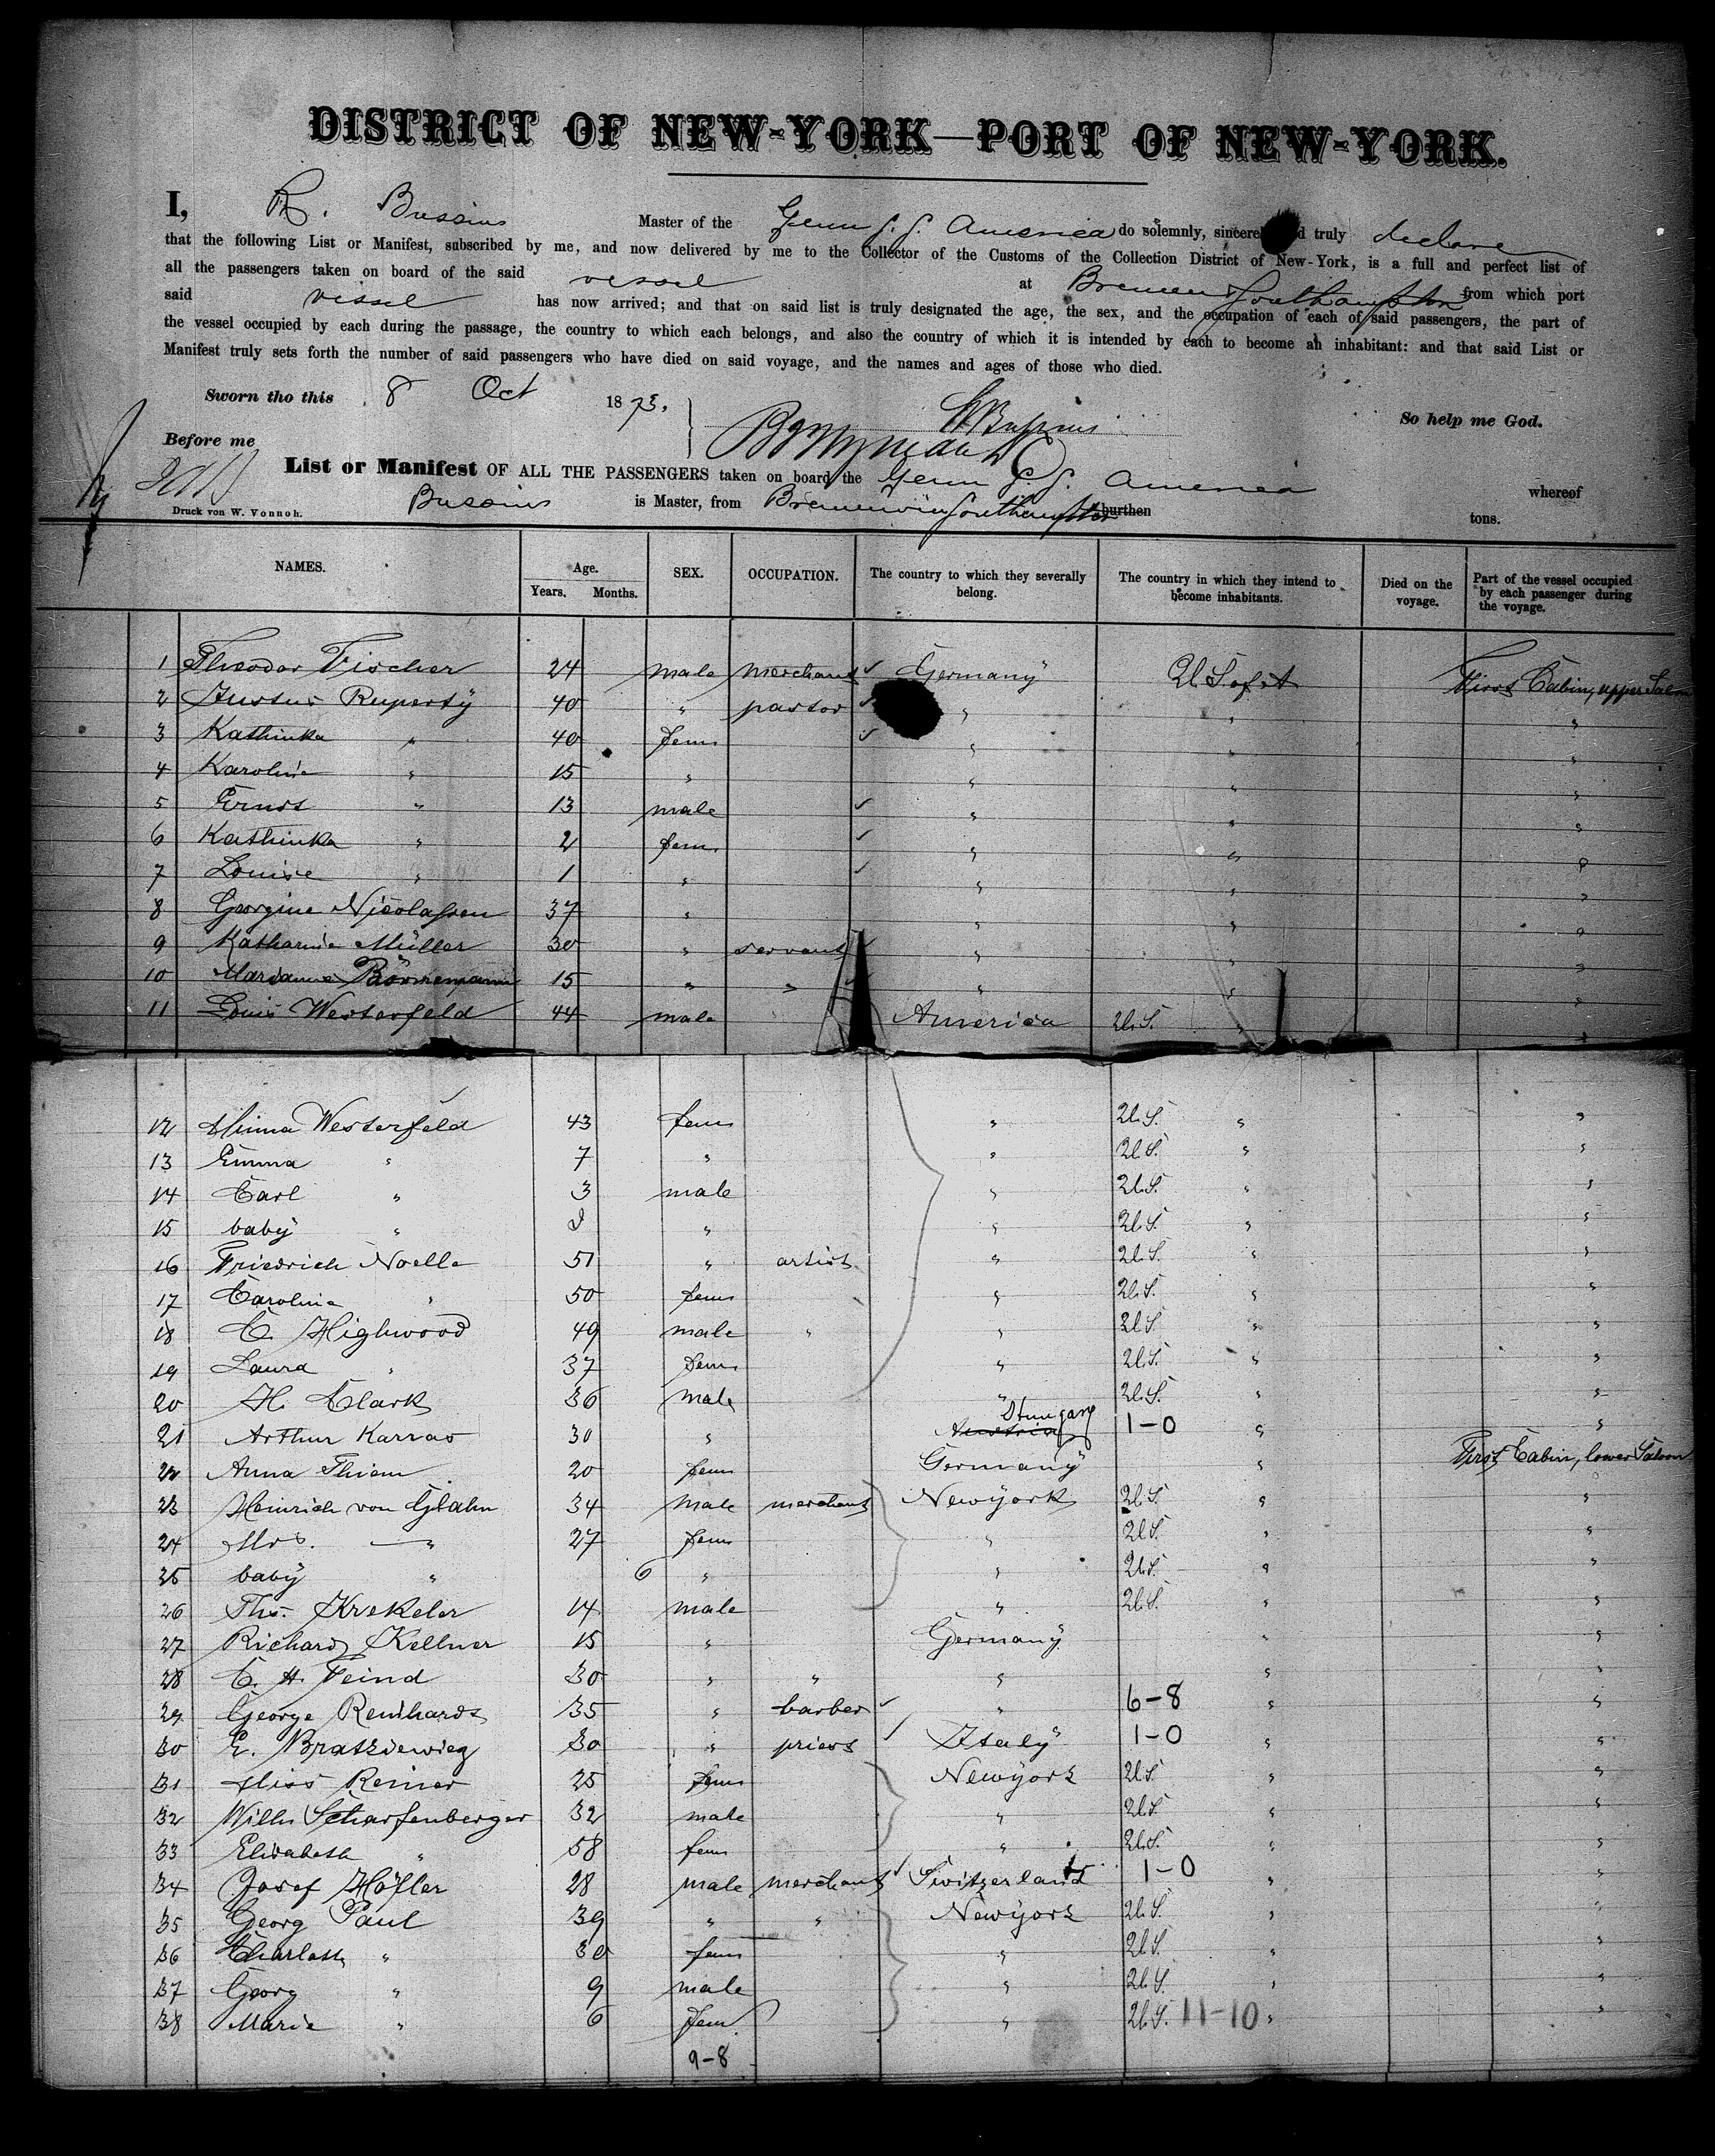 DISTRICT OF NEW-YORK—PORT OF NEW-YORK.
I, R. Bussius Master of the Germ S. S. America do solemnly, sincerely and truly declare
that the following List or Manifest, subscribed by me, and now delivered by me to the Collector of the Customs of the Collection District of New-York, is a full and perfect list of
all the passengers taken on board of the said vessel at Bremen & Southampton from which port
said vessel has now arrived; and that on said list is truly designated the age, the sex, and the occupation of each of said passengers, the part of
the vessel occupied by each during the passage, the country to which each belongs, and also the country of which it is intended by each to become an inhabitant: and that said List or
Manifest truly sets forth the number of said passengers who have died on said voyage, and the names and ages of those who died.
Sworn tho this 8 Oct 1873. So help me God.
Before me
List or Manifest OF ALL THE PASSENGERS taken on board the Germ S. S. America whereof
Druck von W. Vonnoh. Bussius is Master, from Bremen via Southampton burthen tons.
NAMES. Age. Years. Months. SEX. OCCUPATION. The country to which they severally belong. The country in which they intend to become inhabitants. Died on the voyage. Part of the vessel occupied by each passenger during the voyage.
1 Theodor Fischer 24 male merchant Germany U. S. of A First Cabin, upper Saloon
2 Justus Ruperty 40 " pastor " " "
3 Kathinka " 40 fem " " "
4 Karoline " 15 " " " "
5 Ernst " 13 male " " "
6 Kathinka " 2 fem " " "
7 Louise " 1 " " " "
8 Georgine Nicolassen 37 " " " "
9 Katharine Müller 30 " servant " " "
10 Marianne 15 " " " " "
11 Louis Westerfeld 44 male America U. S. " "
12 Minna Westerfeld 43 fem " U. S. " "
13 Emma " 7 " " U. S. " "
14 Carl " 3 male " U. S. " "
15 baby " " " U. S. " "
16 Friedrich Noelle 51 " artist " U. S. " "
17 Caroline " 50 fem " U. S. " "
18 C. Highwood 49 male " " U. S. " "
19 Laura " 37 fem " U. S. " "
20 H. Clark 36 male " U. S. " "
21 Arthur Karras 30 " Austria Hungary 1-0 " "
22 Anna Thiem 20 fem Germany " First Cabin, lower Saloon
23 Heinrich von Glahn 34 male merchant Newyork U. S. " "
24 Mrs. — " 27 fem " U. S. " "
25 baby " 6 " " U. S. " "
26 Ths. Krekeler 14 male " U. S. " "
27 Richard Kellner 15 " Germany " "
28 C. H. Feind 30 " " " " "
29 George Reinhards 35 " barber " 6-8 " "
30 E. 30 " priest Italy 1-0 " "
31 Miss Reiner 25 fem Newyork U. S. " "
32 Willm Scharfenberger 32 male " U. S. " "
33 Elisabeth " 58 fem " U. S. " "
34 Josef Höfler 28 male merchant Switzerland 1-0 " "
35 Georg Paul 39 " " Newyork U. S. " "
36 Charlotte " 30 fem " U. S. " "
37 Georg " 9 male " U. S. " "
38 Marie " 6 fem " U. S. 11-10 " "
9-8